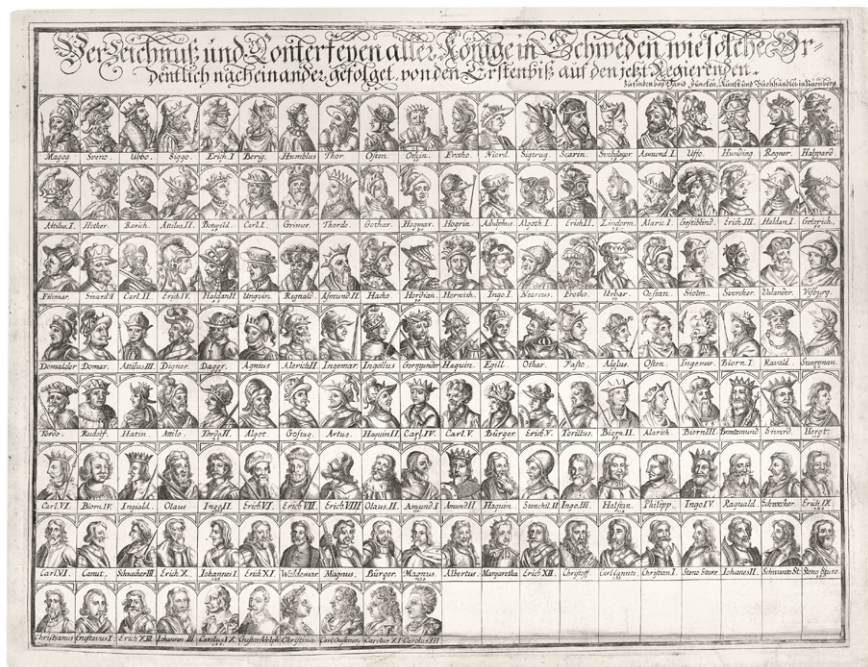 Verzeichnuß und Conterfeyen aller Könige in Schweden, wie solche Or=
dentlich nacheinander gefolget, von den Ersten biß auf den jetzt Regierenden.
Zu finden bey David Funcken, Kunst und Buchhändler in Nürnberg
Magog. Sveno. Ubbo. Siggo. Erich. I Berig. Humblus Thor. Osten. Othin. Frotho. Niord. Sigtrug. Scarin. Asmund I. Uffo. Hunding Regner. Halward
Attilus. I. Hother. Rorich. Attilus. II. Botvild. Carl I. Grimer. Thordo. Gothar. Hogmor. Hogrin Adulphus Algoth. I Erich II. Lindorm. Alaric I. Gestiblind. Erich III. Haldan. I. Godrich.
Filmar. Carl. II. Erich IV. Haldan II Unguin. Regnald. Asmund II. Hacho Hordian. Hornich. Ingo. I. Neorcus. Frotho. Urbar. Oestan. Siolm. Svercher. Valander. Visburg.
Domalder Domar. Attilus III. Digner. Dager. Agnius Alerich II. Ingemar. Ingellus Germunder Haquin. Egill Othar. Fasto. Adglus. Osten. Ingemar Biorn. I. Ravald. Sverman.
Tordo. Rudolf. Hatin. Attilo. Tordo II. Algot. Gostag. Artus. Haquin II. Carl IV. Carl. V. Bürger. Erich. V. Torillus. Biorn. II. Alarich Biorn III. Sivard Hergt.
Carl. VI. Biorn. IV. Ingiald. Olaus Ingo II. Erich VI. Erich VII. Erich VIII Olaus. II. Amund I Amund II Haquin Ingo. III. Halstan. Philipp. Ingo IV. Ragvald Erich IX
Carl VI. Canut. Erich X. Iohannes I Erich XI. Woldemar. Magnus. Bürger. Magnus Albertus. Margaretha Erich XII. Christoff. Christian I. Steno Sture. Iohanes II. Schwante St. Steno Sture.
Christianus Gustavus I. Erich XIII. Iohannes III Carolus IX Gustav Adolph. Christina. Carl Gustavus Carolus XI Carolus XII